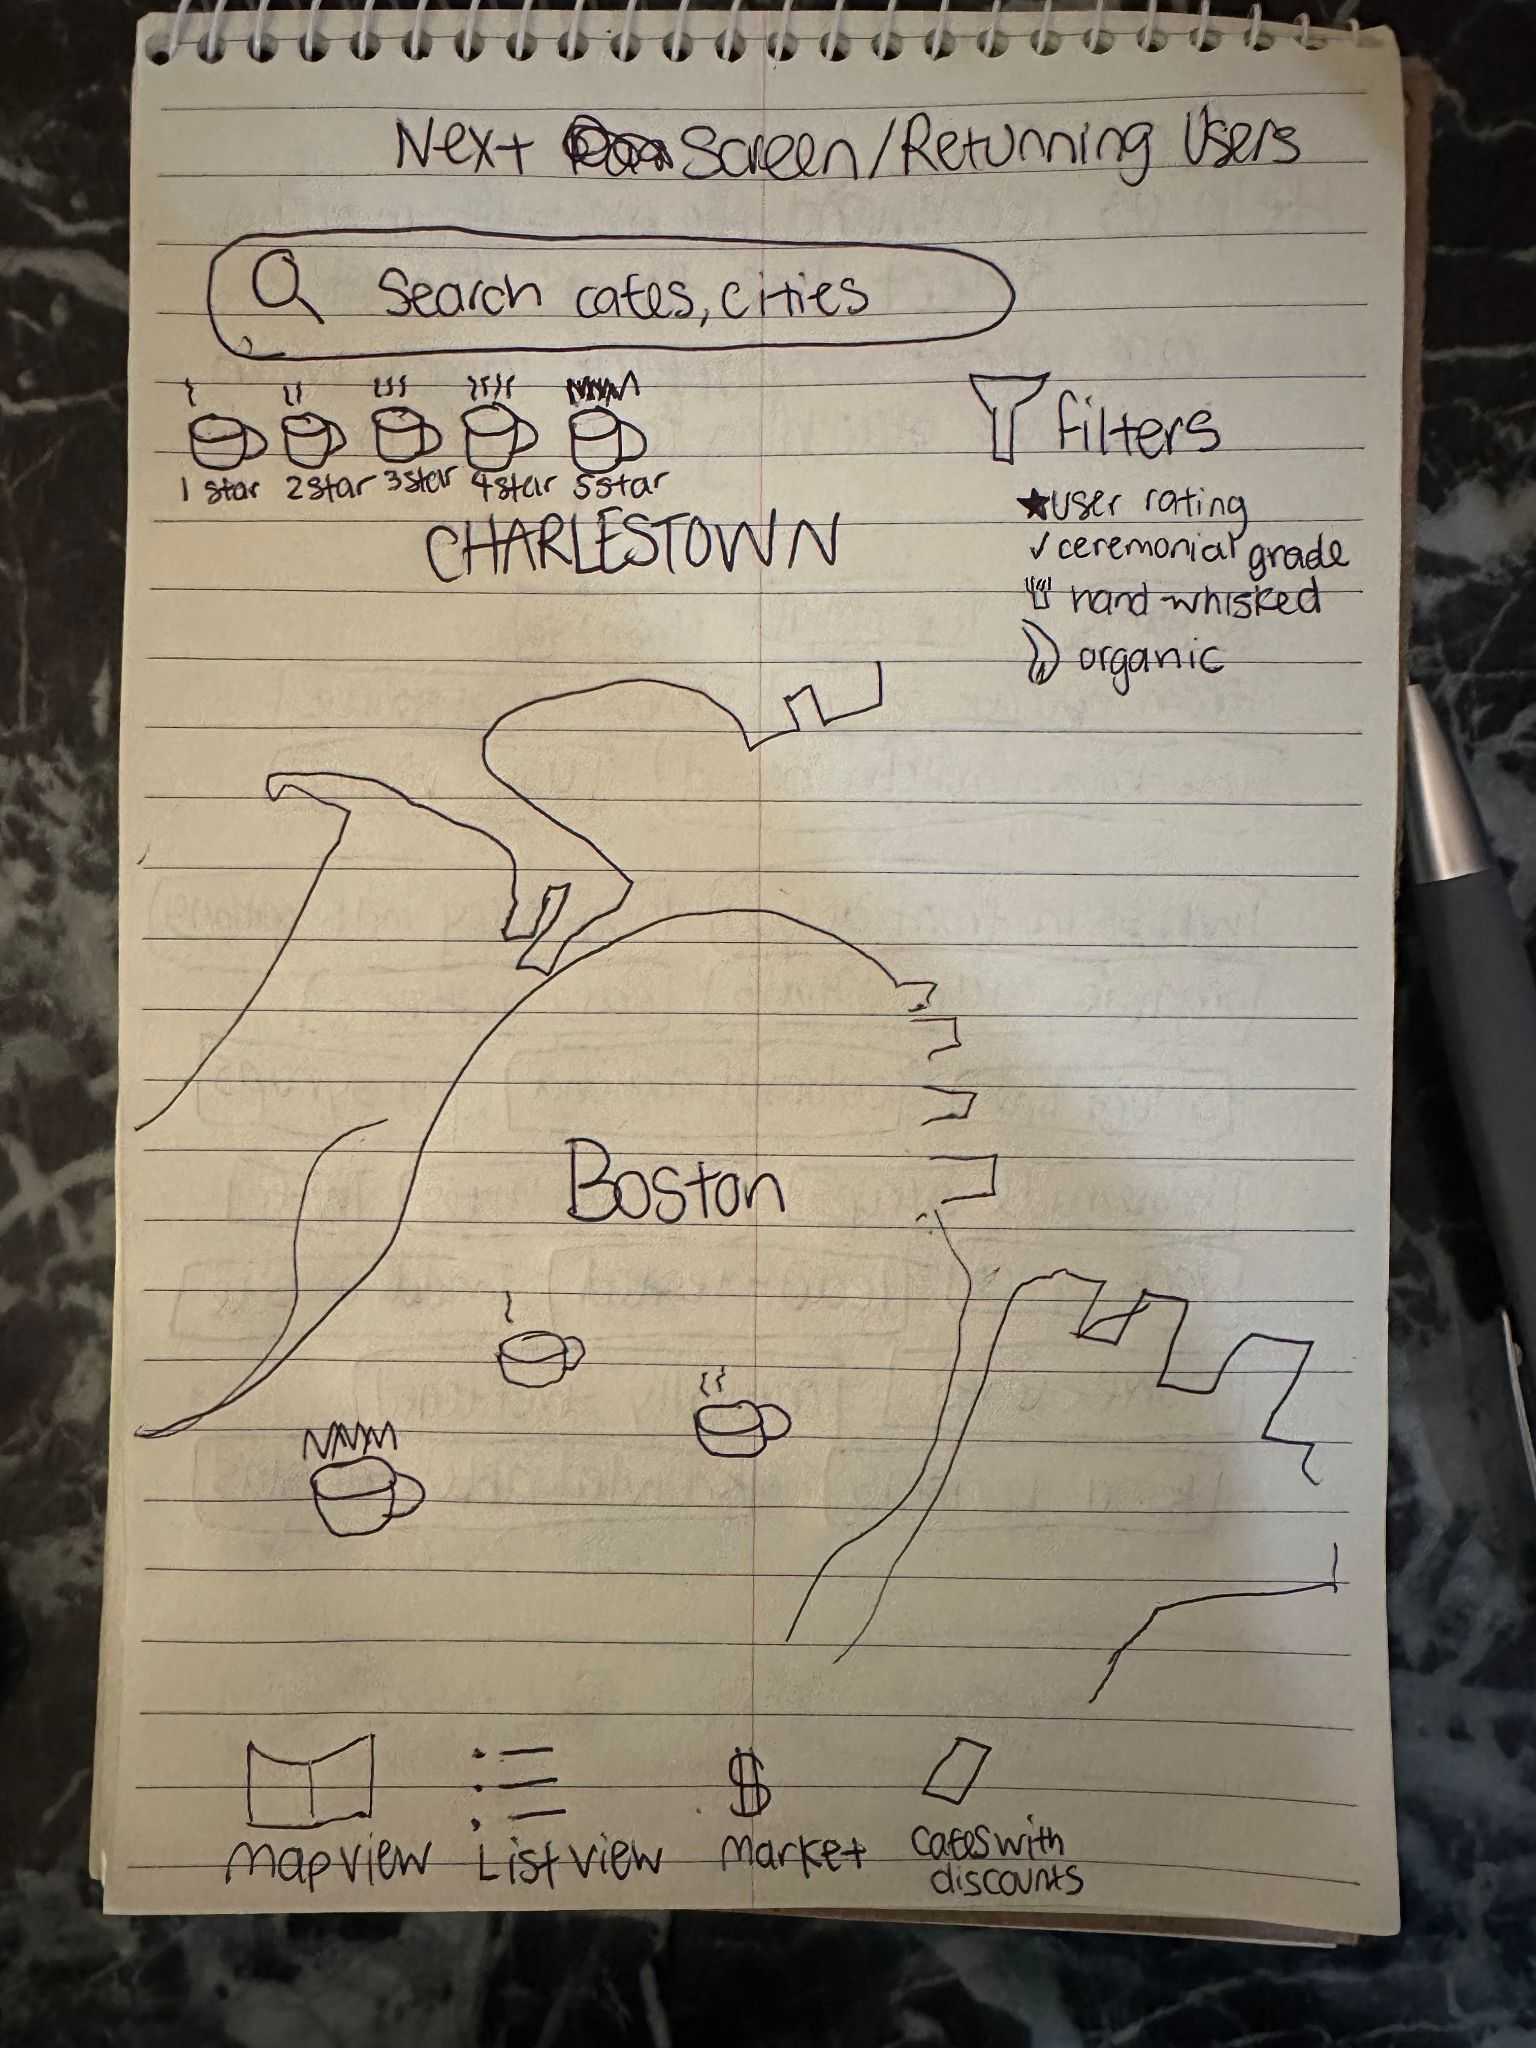 Next Screen/Returnning Users
Search cafes, cities
1 star 2 star 3 star 4 star 5 star
filters
★ user rating
✓ ceremonial grade
hand-whisked
organic
CHARLESTOWN
Boston
map view
List view
$
market
cafes with
discounts